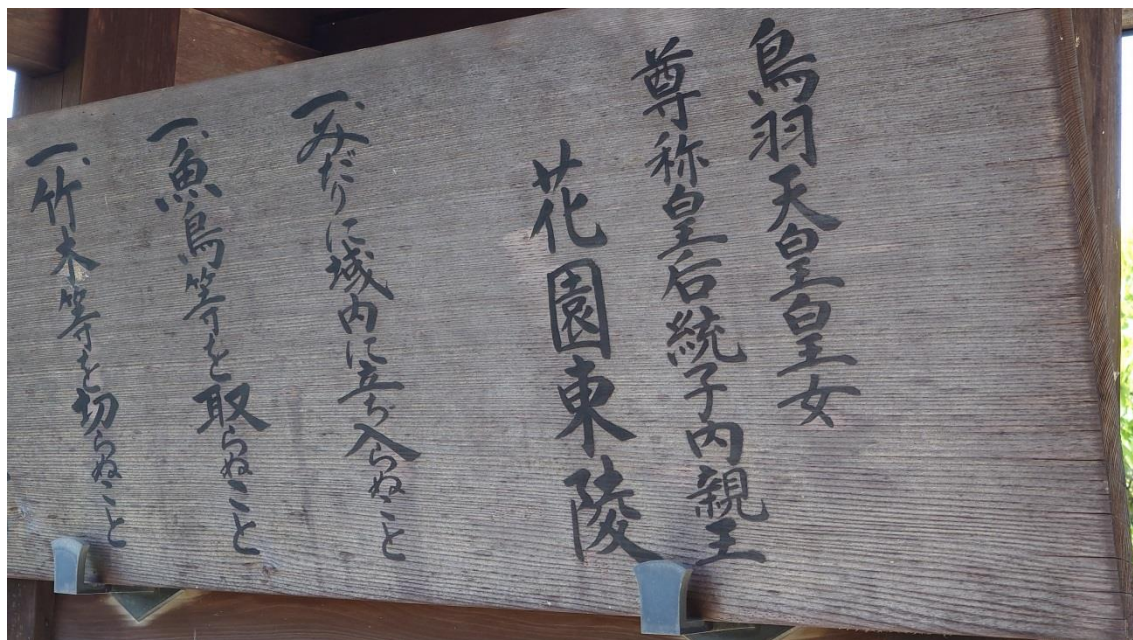 鳥羽天皇皇女
尊称皇后統子内親王
花園東陵
一、みだりに域内に立ち入らぬこと
一、魚鳥等を取らぬこと
一、竹木等を切らぬこと